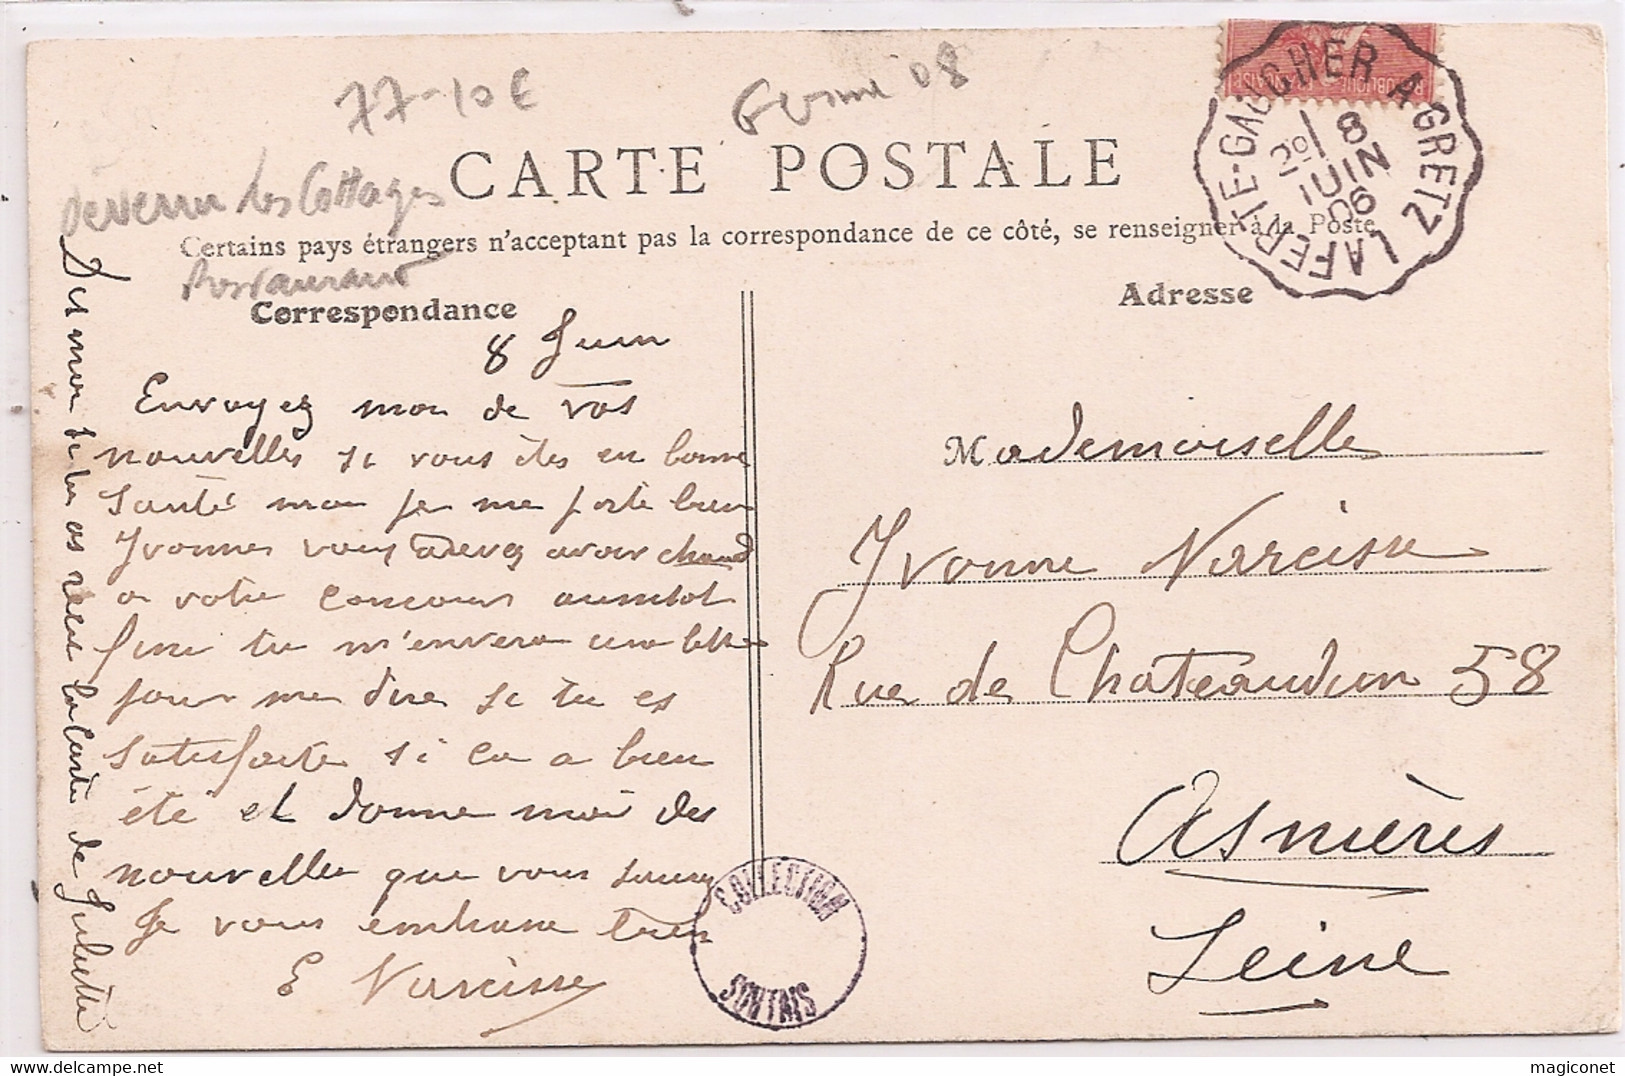 77-10 €
08
CARTE POSTALE
devenu les Cottages
Certains pays étrangers n'acceptant pas la correspondance de ce côté, se renseigner à la Poste
Restaurant
Correspondance
8 Juin
Envoyez moi de vos
nouvelles si vous êtes en bonne
santé moi je me porte bien
Yvonne vous devez avoir chaud
a votre concours aussitot
fini tu m'envera une lettre
pour me dire si tu es
satisfaite si ca a bien
été et donne moi des
nouvelles que vous
Je vous embrasse bien
E Narcisse
Dis moi si tu as reçu la carte de Juliette
LAFERTE-GAUCHER A GRETZ
2º 8
JUIN
06
REPUBLIQUE FRANÇAISE
Adresse
Mademoiselle
Yvonne Narcisse
Rue de Chateaudun 58
Asnières
Seine
COLLECTION
SONTAIS
magiconet